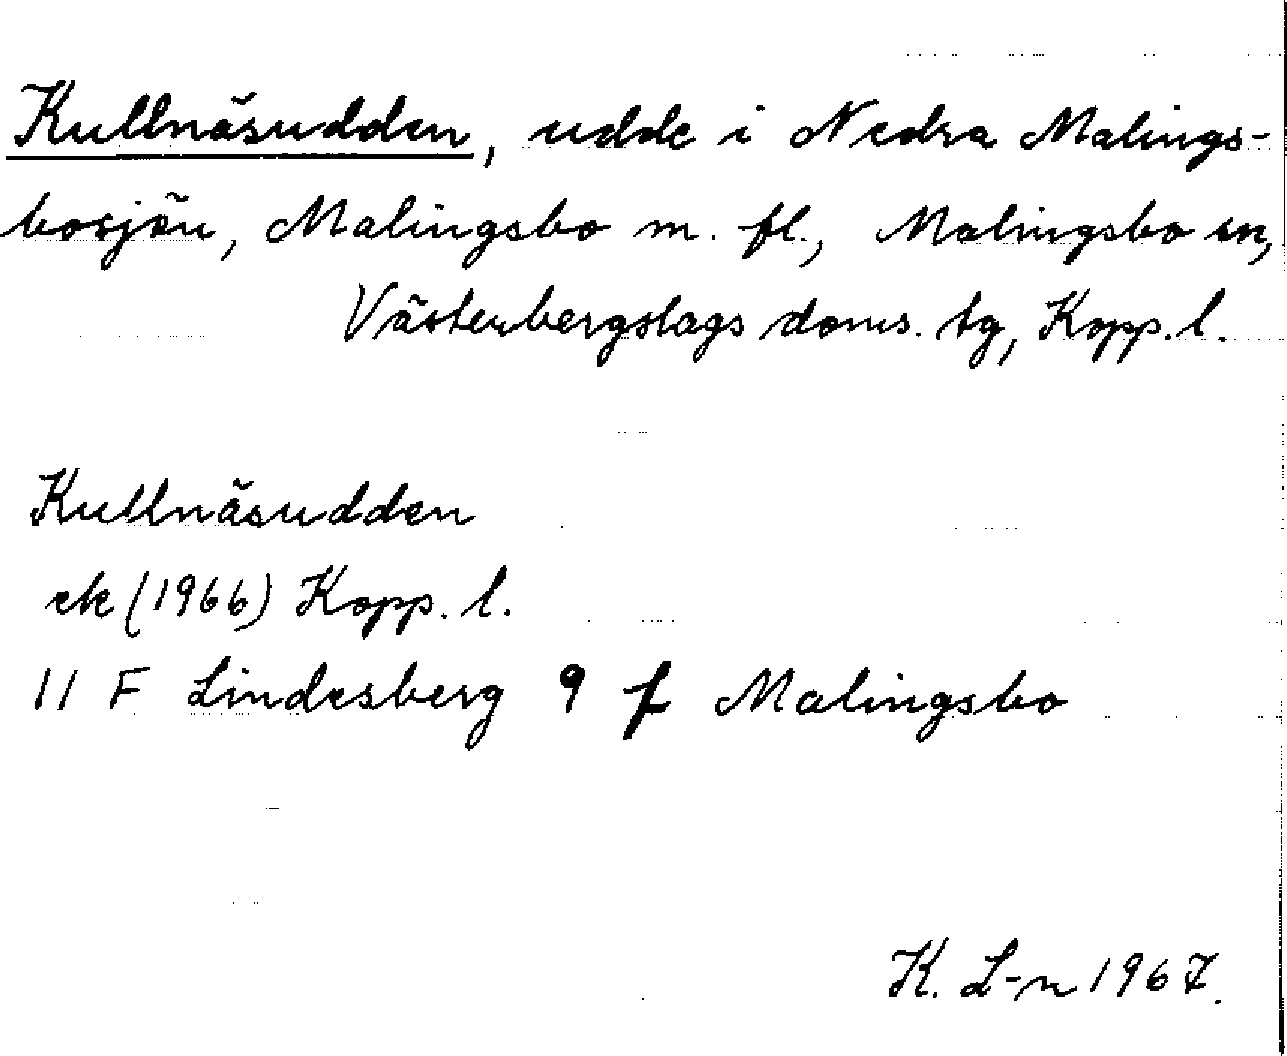 Kullnäsudden, udde i Nedra Malings-
bosjön, Malingsbo m. fl., Malingsbo sn,
Västerbergslags doms. tg, Kopp. l.
Kullnäsudden
ek (1966) Kopp. l.
11 F Lindesberg 9 f Malingsbo
K. L-n 1967.